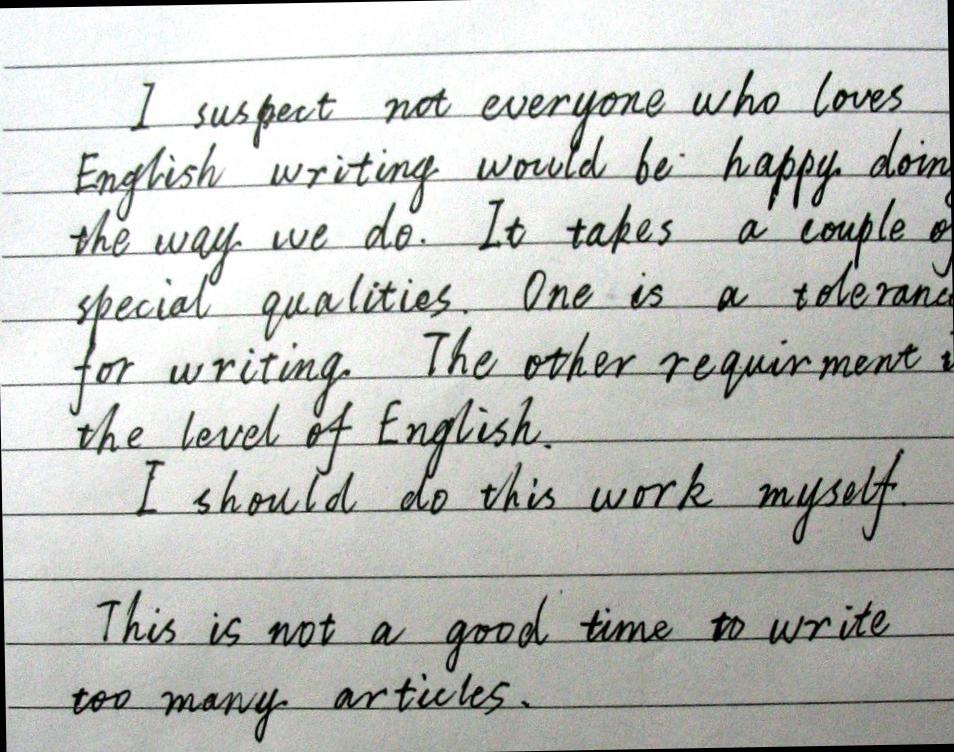 I suspect not everyone who loves
English writing would be happy doing
the way we do. It takes a couple of
special qualities. One is a toleranc
for writing. The other requirment i
the level of English.
I should do this work myself.
This is not a good time to write
too many articles.